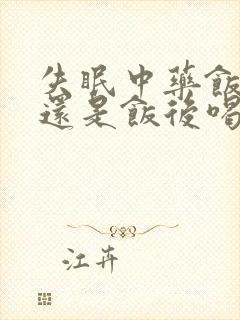 失眠中藥飯
還是飯後喝
江卉